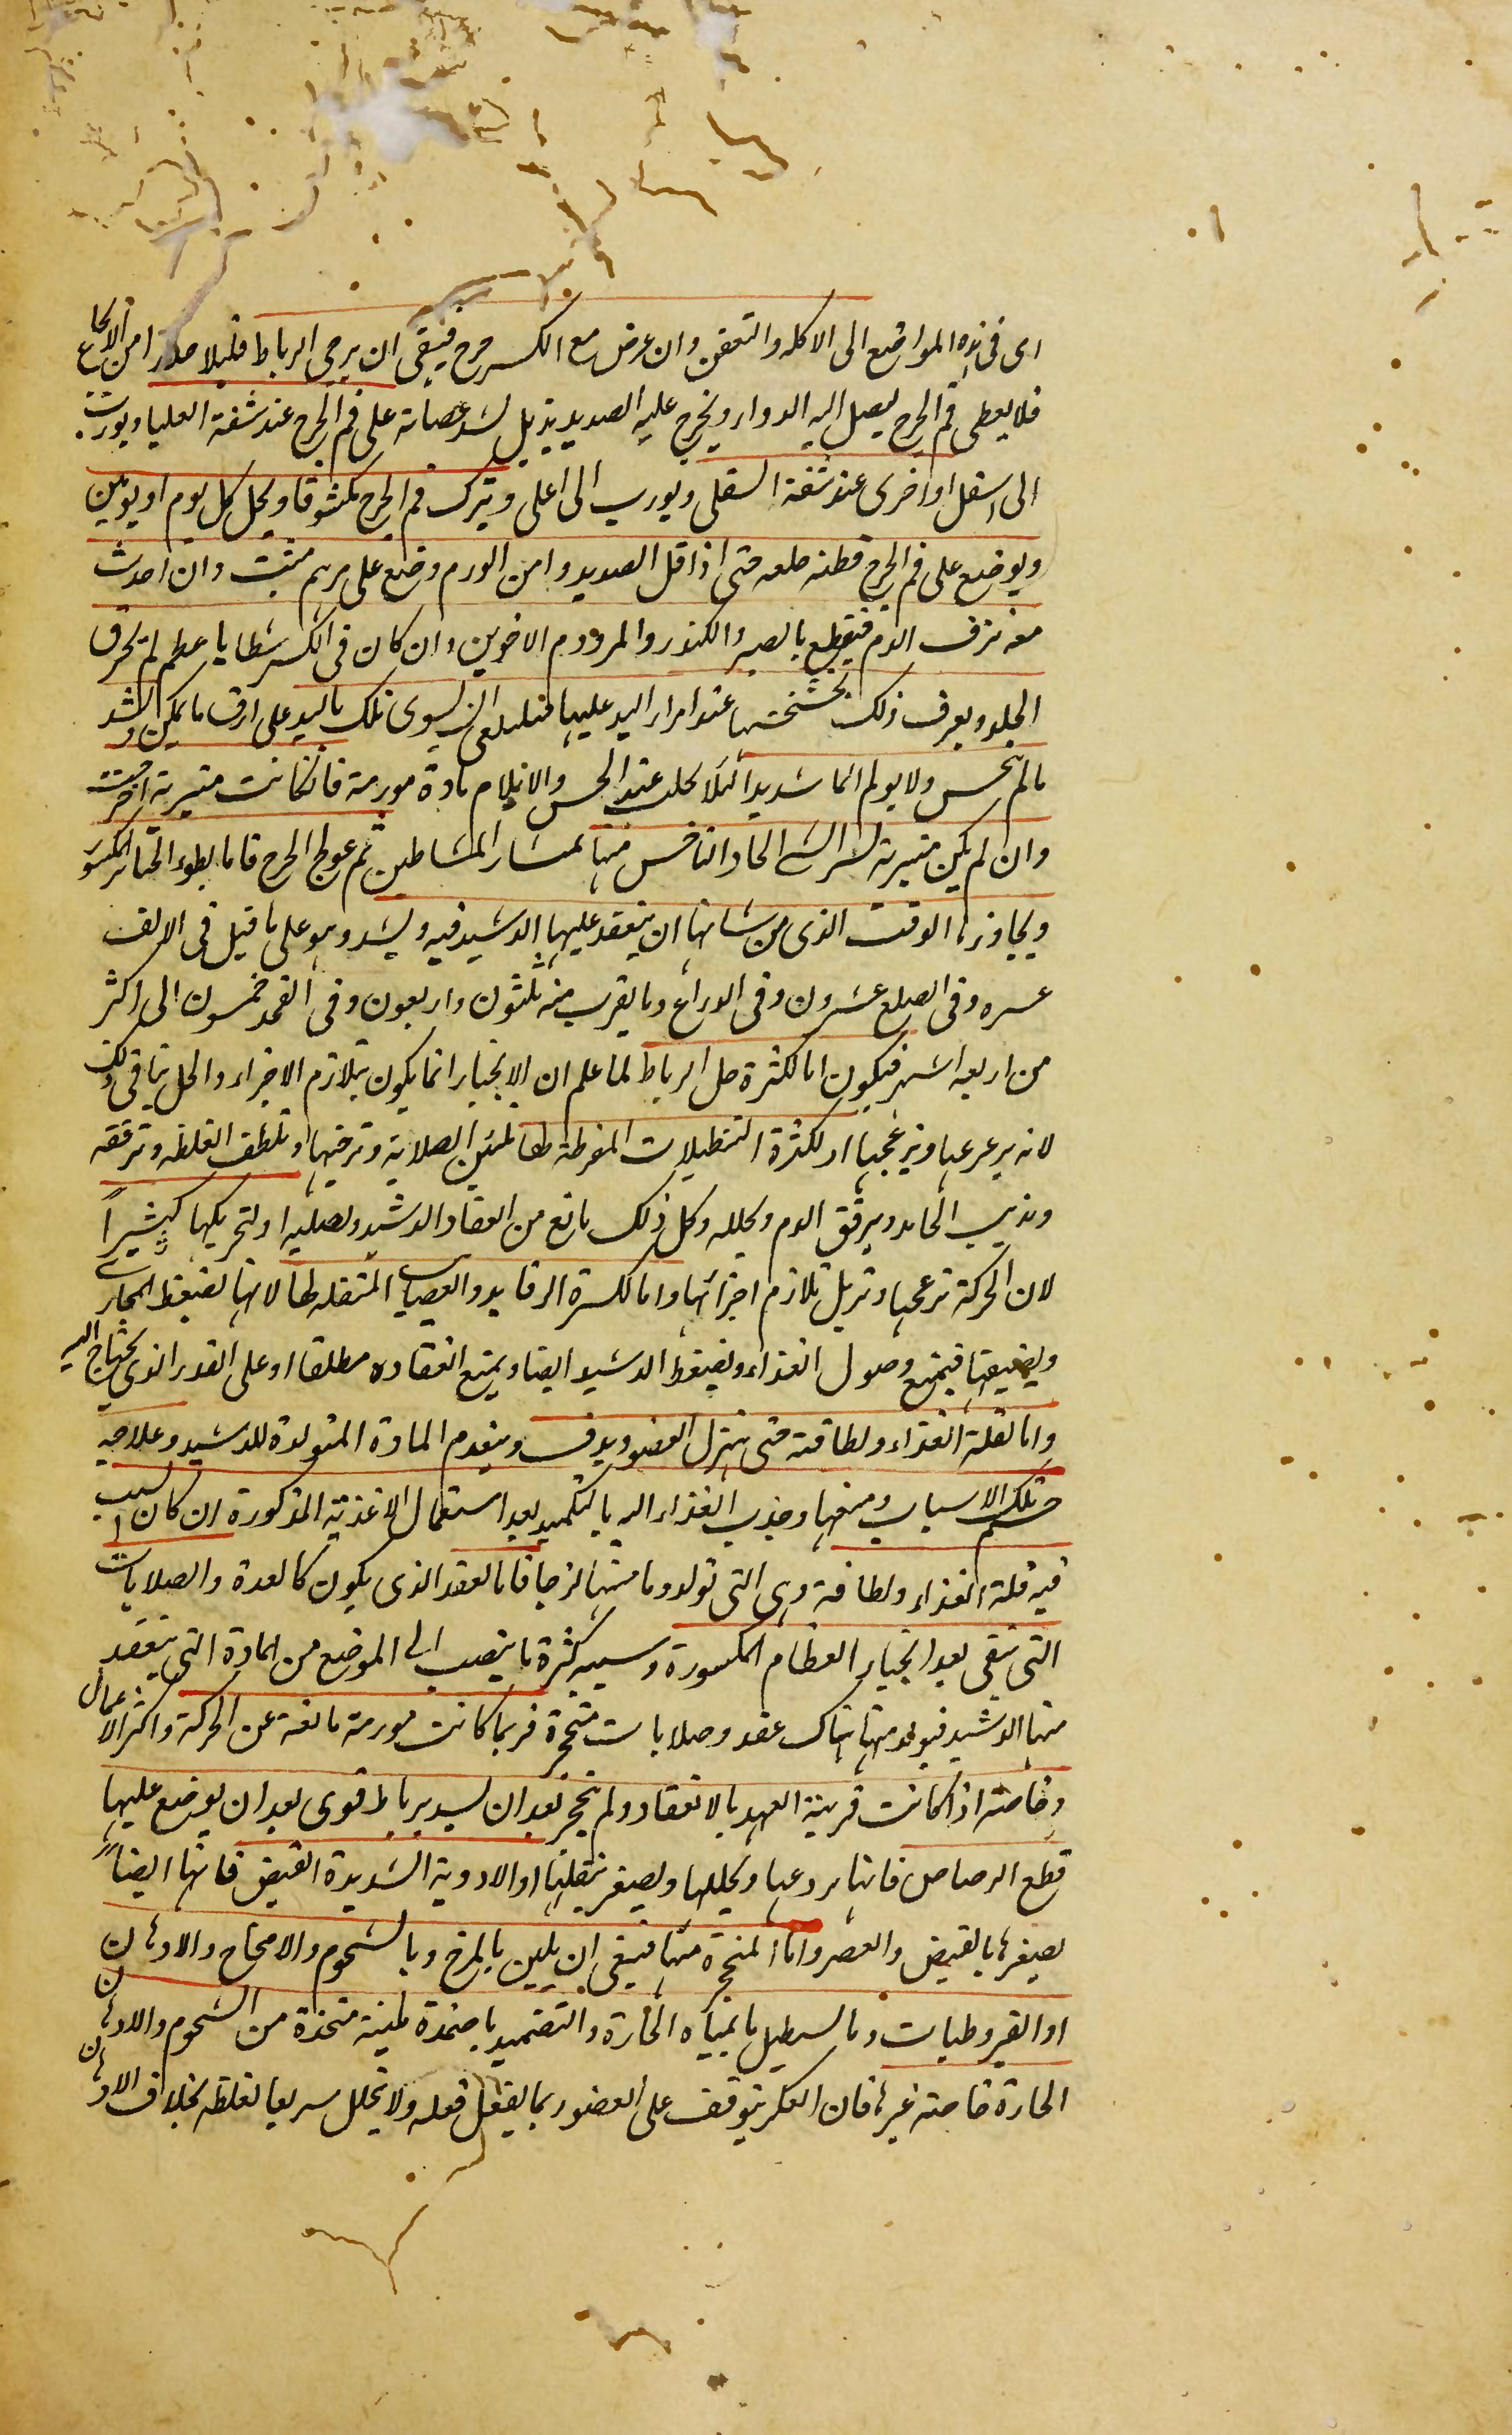 اى فى هذه المواضع الى الاكله والتعفن وان عرض مع الكسر جرح فينبغى ان يرخى الرباط قليلا حذرا من الاوجاع
فلا يغطى فم الجرح ليصل اليه الدواء ويخرج عليه الصديد بذيل لشد عصابة على فم الجرح عند شفة العليا ويورب
الى اسفل واخرى عند شفة السفلى ويورب الى اعلى ويترك فم الجرح مكشوفا ويحل كل يوم او يومين
ويوضع على فم الجرح قطنه حتى اذا قل الصديد وامن الورم وضع على مرهم منبت وان احدث
معه نزف الدم فيقطع بالصبر والكندر والمر ودم الاخوين وان كان فى الكسر شظايا عظم لم تخرق
الجلد ويعرف ذلك بخشخشتها عند امرار اليد عليها تلك باليد على ارفق ما يمكن ويشد
ما لم ينخس ولا يولم الما شديدا لئلا عند الحس والايلام مادة مورمة فان كانت متبرية اخرجت
وان لم يكن متبرية نشر الشى الحاد الناخس منها بمنشار المشاطين ثم عولج الجرح فاما بطوء انجبار المكسور
ويجاوزها الوقت الذى من شانها ان ينعقد عليها الدشبد فيه ويشد وهو على ما قيل فى الانف
عشره وفى الضلع عشرون وفى الذراع وما يقرب منه ثلثون واربعون وفى الفخذ خمسون الى اكثر
من اربعه اشهر فيكون اما لكثرة حل الرباط لما علم ان الانجبار انما يكون بتلازم الاجزاء والحل ينافى ذلك
لانه يزعزعها ويزعجها او لكثرة التنطيلات المفرطة فانها تلين الصلابة وترخيها وتلطف الغليظه وترققه
وتذيب الجامد ويرقق الدم ويحلله وكل ذلك مانع من انعقاد الدشبد وتصلبه او لتحريكها كثيرا
لان الحركة تزعجها وتزيل تلازم اجزائها واما لكثرة الرفايد والعصايب المثقله لها لانها تضغط المجارى
ويضيقها فيمنع وصول الغذاء ويضغط الدشبد ايضا ويمنع انعقاده مطلقا او على القدر الذى يحتاج اليه
واما لقلة الغذاء ولطافته حتى يهزل العضو ويدق وينعدم المادة المتولدة للدشبد وعلاجه
حسم تلك الاسباب ومنعها وجذب الغذاء اليه بالتكميد بعد استعمال الاغذية المذكورة ان كان السبب
فيه قلة الغذاء ولطافته وهى التى تولد دما متينا لزجا فاما العقد الذى يكون كالغدة والصلابات
التى تبقى بعد انجبار العظام المكسورة وسببه كثرة ما ينصب الى الموضع من المادة التى ينعقد
منها الدشبد فيولد منها هناك عقد وصلابات متحجرة فربما كانت مورمة مانعة عن الحركة واكثر الاعمال
وخاصته اذا كانت قريبة العهد بالانعقاد ولم تتحجر بعد ان يشد برباط قوى بعد ان يوضع عليها
قطع الرصاص فانها يردعها ويحللها ويصغر بثقلها او الادوية الشديدة القبض فانها ايضا
يصغرها بالقبض والعصر واما المتحجرة منها فينبغى ان يلين بالمرخ وبالشحوم والامخاخ والادهان
او القيروطيات وبالتنطيل بالمياه الحارة والتضميد باضمدة ملينه متخذة من الشحوم والادهان
الحارة خاصته غيرها فان العكر يتوقف على العضو ريثما يفعل فعله ولا يتحلل سريعا لغلظه بخلاف الادهان